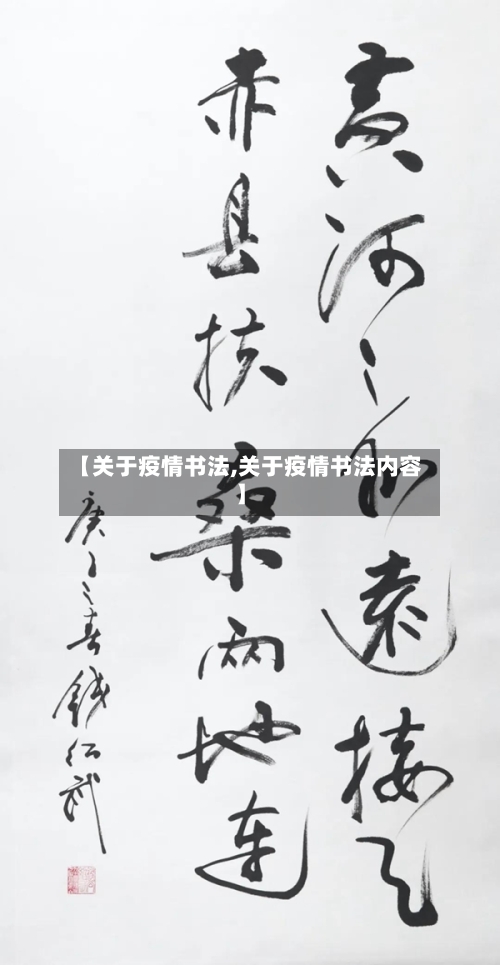 黄河之水遠接天
赤县扶桑两地連
庚子之春錢绍武
【关于疫情书法,关于疫情书法内容
】